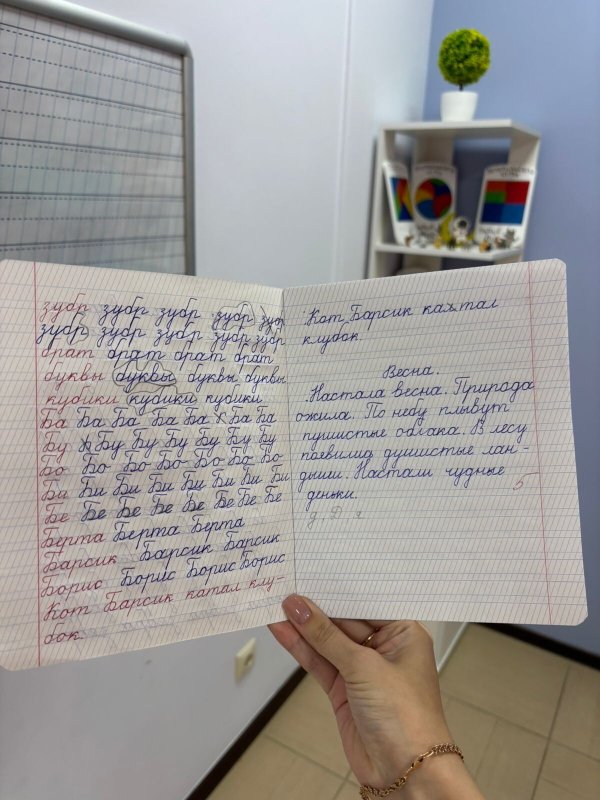 зубр зубр зубр зубр зубр
зубр зубр зубр зубр зубр зубр
брат брат брат брат
буквы буквы буквы буквы
кубики кубики кубики
Ба Ба Ба Ба Ба Ба Ба
Бу Бу Бу Бу Бу Бу
Бо Бо Бо Бо Бо Бо Бо
Би Би Би Би Би Би Би Би
Бе Бе Бе Бе Бе Бе Бе
Берта Берта Берта
Барсик Барсик Барсик
Борис Борис Борис Борис
Кот Барсик катал клу-
бок.
Кот Барсик катал
клубок.
Весна.
Настала весна. Природа
ожила. По небу плывут
пушистые облака. В лесу
поевились душистые лан-
дыши. Настали чудные
деньки.
5